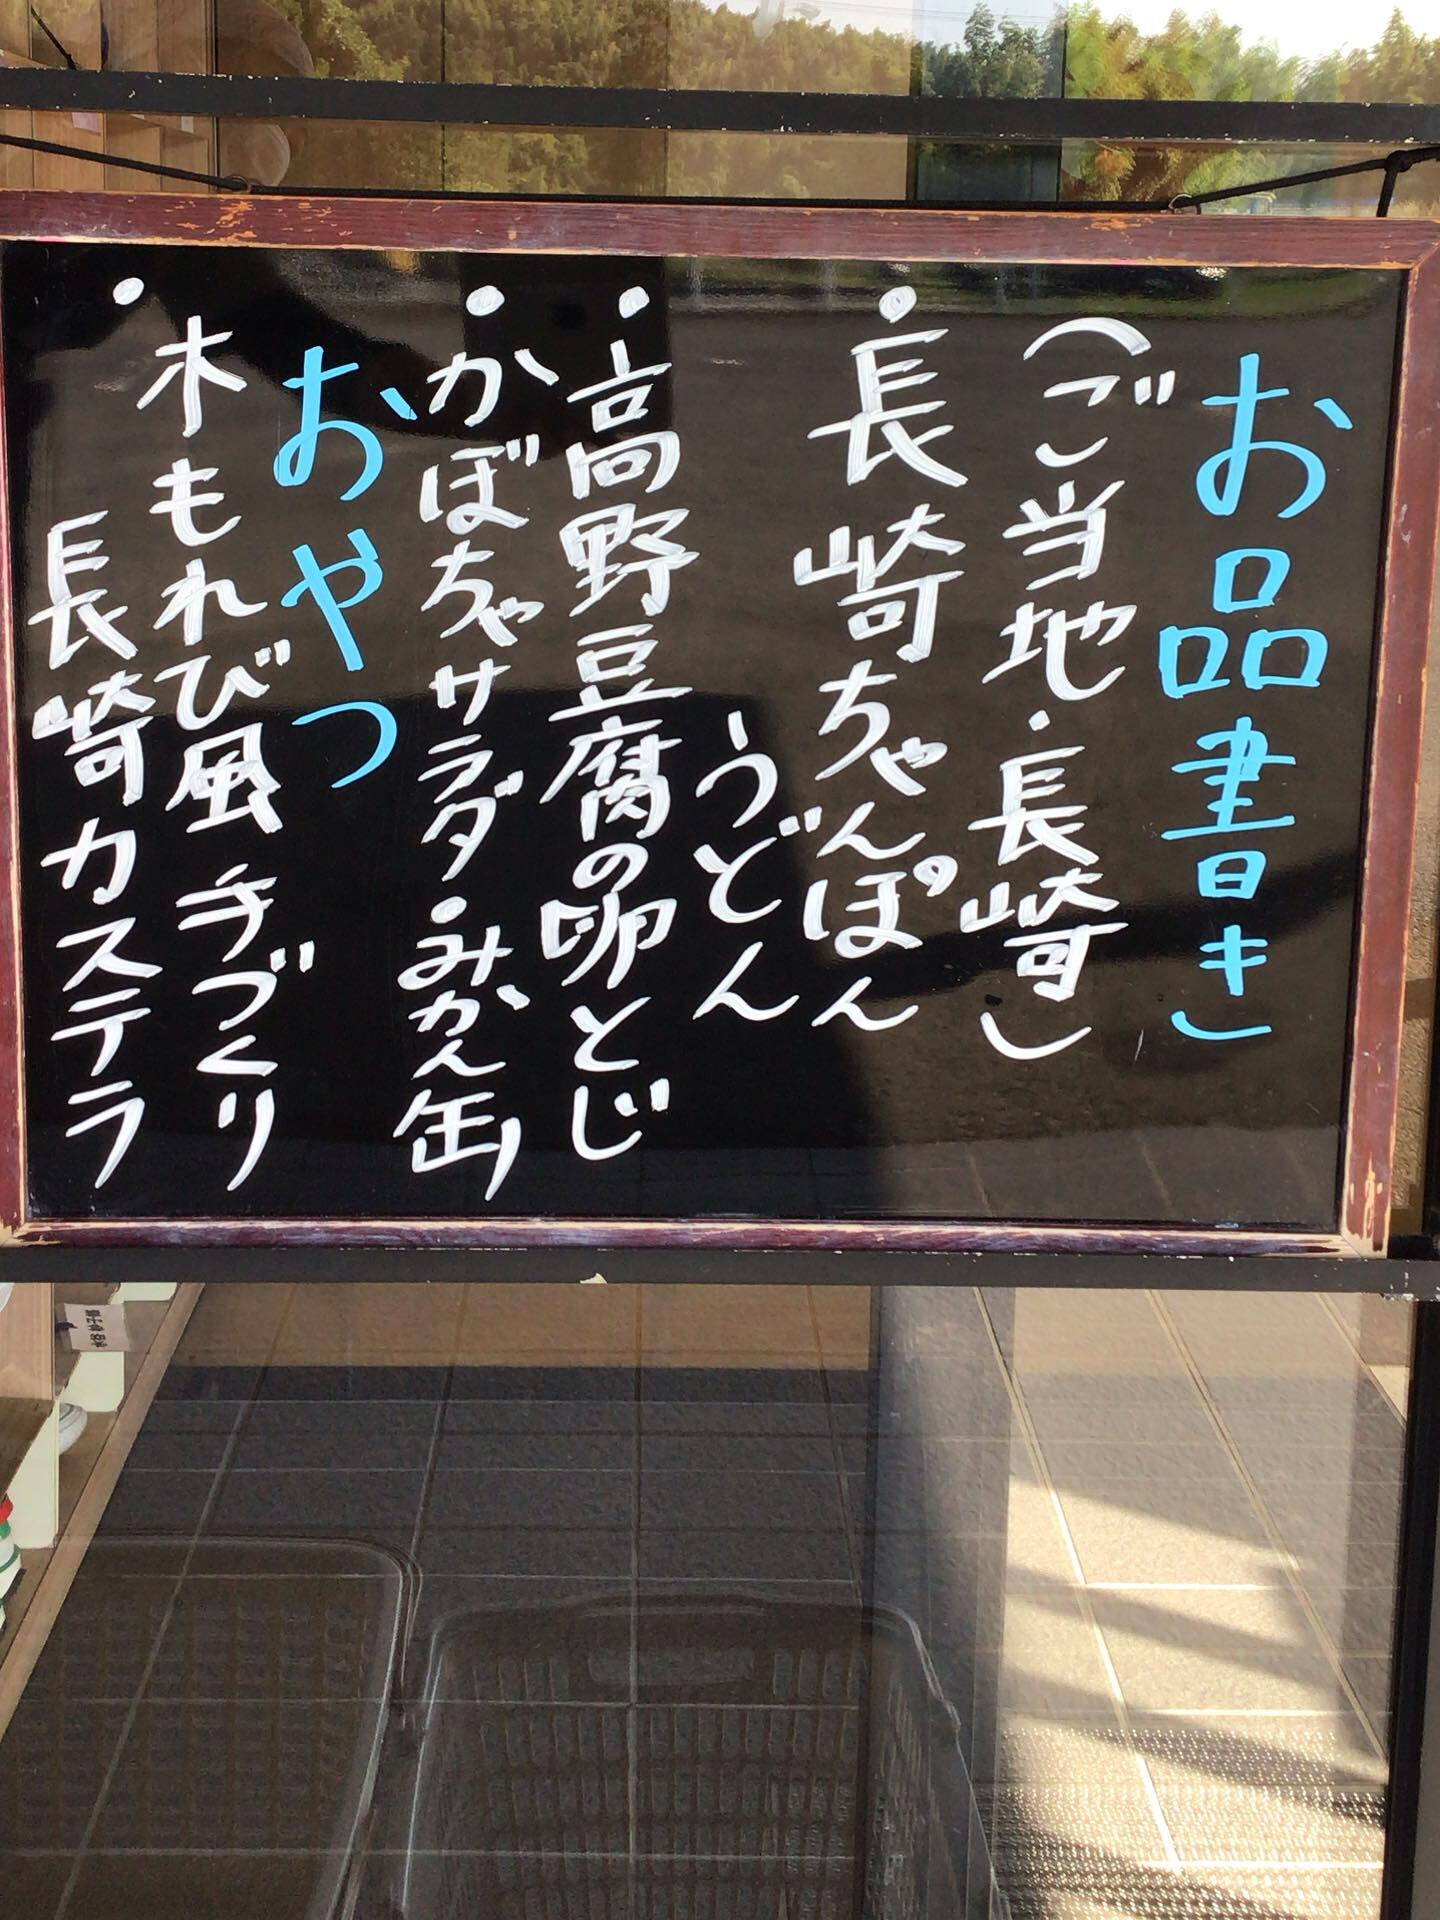 お品書き
(ご当地・長崎)
・長崎ちゃんぽん
うどん
・高野豆腐の卵とじ
・かぼちゃサラダ・みかん缶
おやつ
・木もれび風 手づくり
長崎カステラ